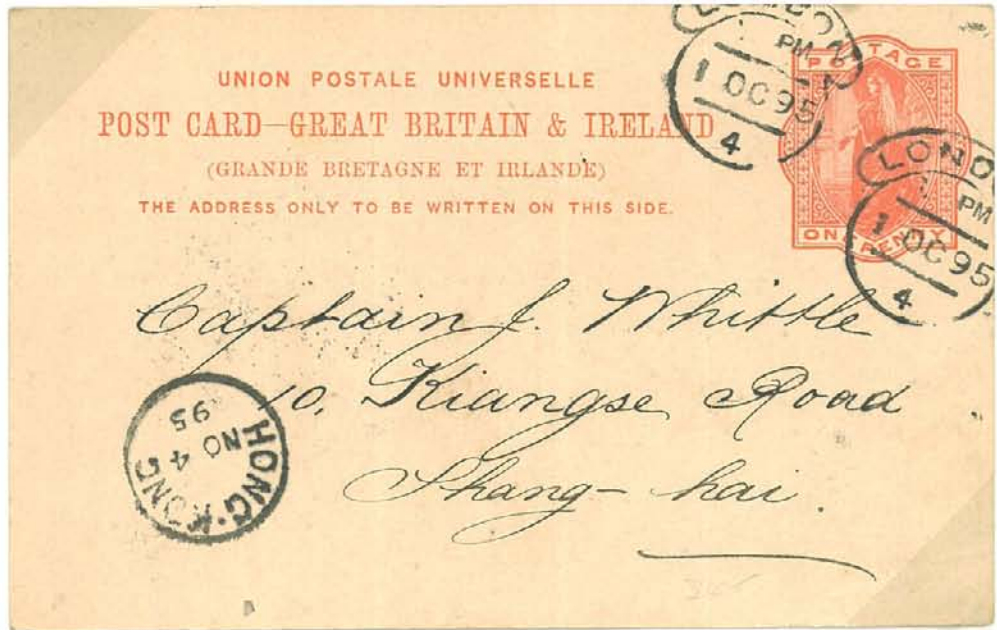 UNION POSTALE UNIVERSELLE
POST CARD—GREAT BRITAIN & IRELAND
(GRANDE BRETAGNE ET IRLANDE)
THE ADDRESS ONLY TO BE WRITTEN ON THIS SIDE.
POSTAGE
ONE PENNY
LONDON
PM
1 OC 95
4
LONDO
PM
1 OC 95
4
Captain J. Whittle
10, Kiangse Road
Shang-hai.
HONG·KONG
NO 4
95